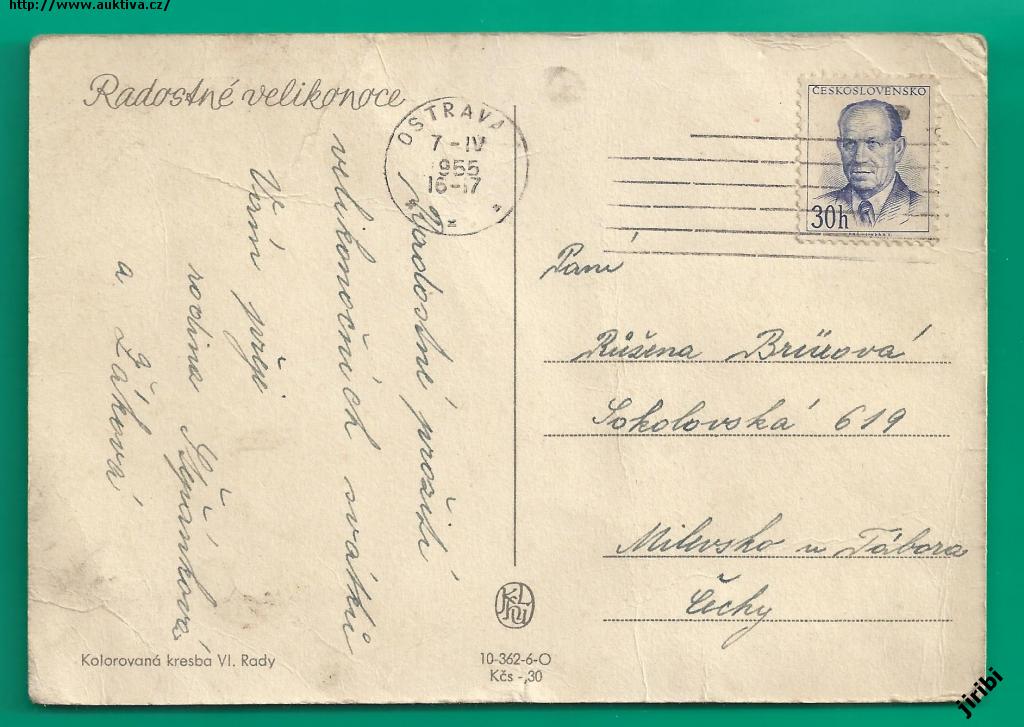 http://www.auktiva.cz/
Radostné velikonoce
OSTRAVA
7-IV
1955
16-17
ČESKOSLOVENSKO
30h
Radostné prožití
velikonočních svátků
Vám přeje
rodina Štěpánková
a Žáková
Paní
Růžena Brürová
Sokolovská 619
Milevsko u Tábora
Čechy
Kolorovaná kresba Vl. Rady
10-362-6-O
Kčs -,30
jiribi